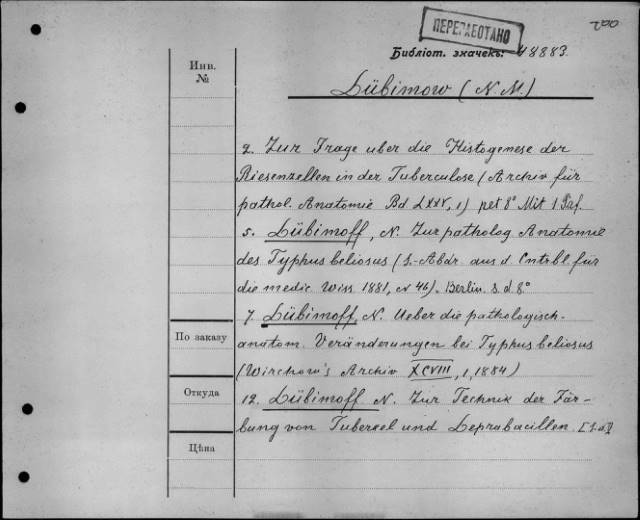 ПЕРЕРАБОТАНО
Библіот. значекъ: 48883.
Инв.
№
Lübimow (N. M.)
2. Zur Frage uber die Histogenese der
Riesenzellen in der Tuberculose (Archiv für
pathol. Anatomie Bd LXXV, 1) pet 8° Mit 1 Taf.
5. Lübimoff, N. Zur patholog Anatomie
des Typhus beliosus (S.-Abdr. aus d. Cntrbl. für
die medic. Wiss. 1881, № 46). Berlin. s. d. 8°
7. Lübimoff, N. Ueber die pathologisch-
anatom. Veränderungen bei Typhus beliosus
(Wirchow's Archiv XCVIII, 1, 1884)
12. Lübimoff N. Zur Technik der Fär-
bung von Tuberkel und Leprabacillen. [s. d.]
По заказу
Откуда
Цѣна